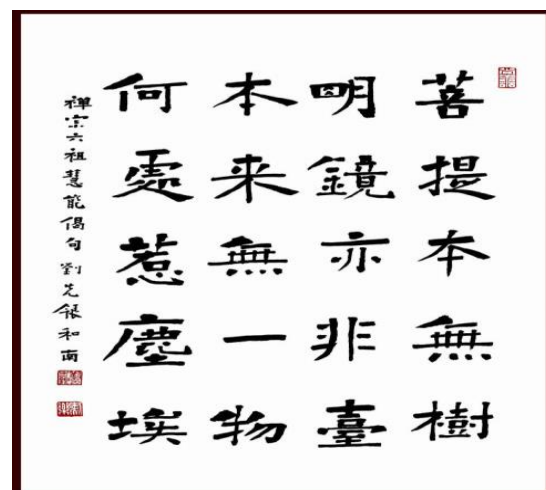 菩提本無樹
明鏡亦非臺
本来無一物
何處惹塵埃
禪宗六祖慧能偈句劉先銀和南